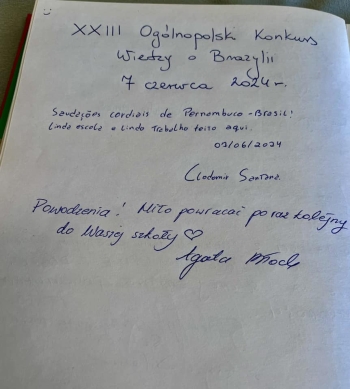 XXIII Ogólnopolski Konkurs
Wiedzy o Brazylii
7 czerwca 2024 r.
Saudações cordiais de Pernambuco - Brasil!
Linda escola e lindo trabalho feito aqui.
07/06/2024
Clodomir Santana
Powodzenia! Miło powracać po raz kolejny
do Waszej szkoły ♡
Agata